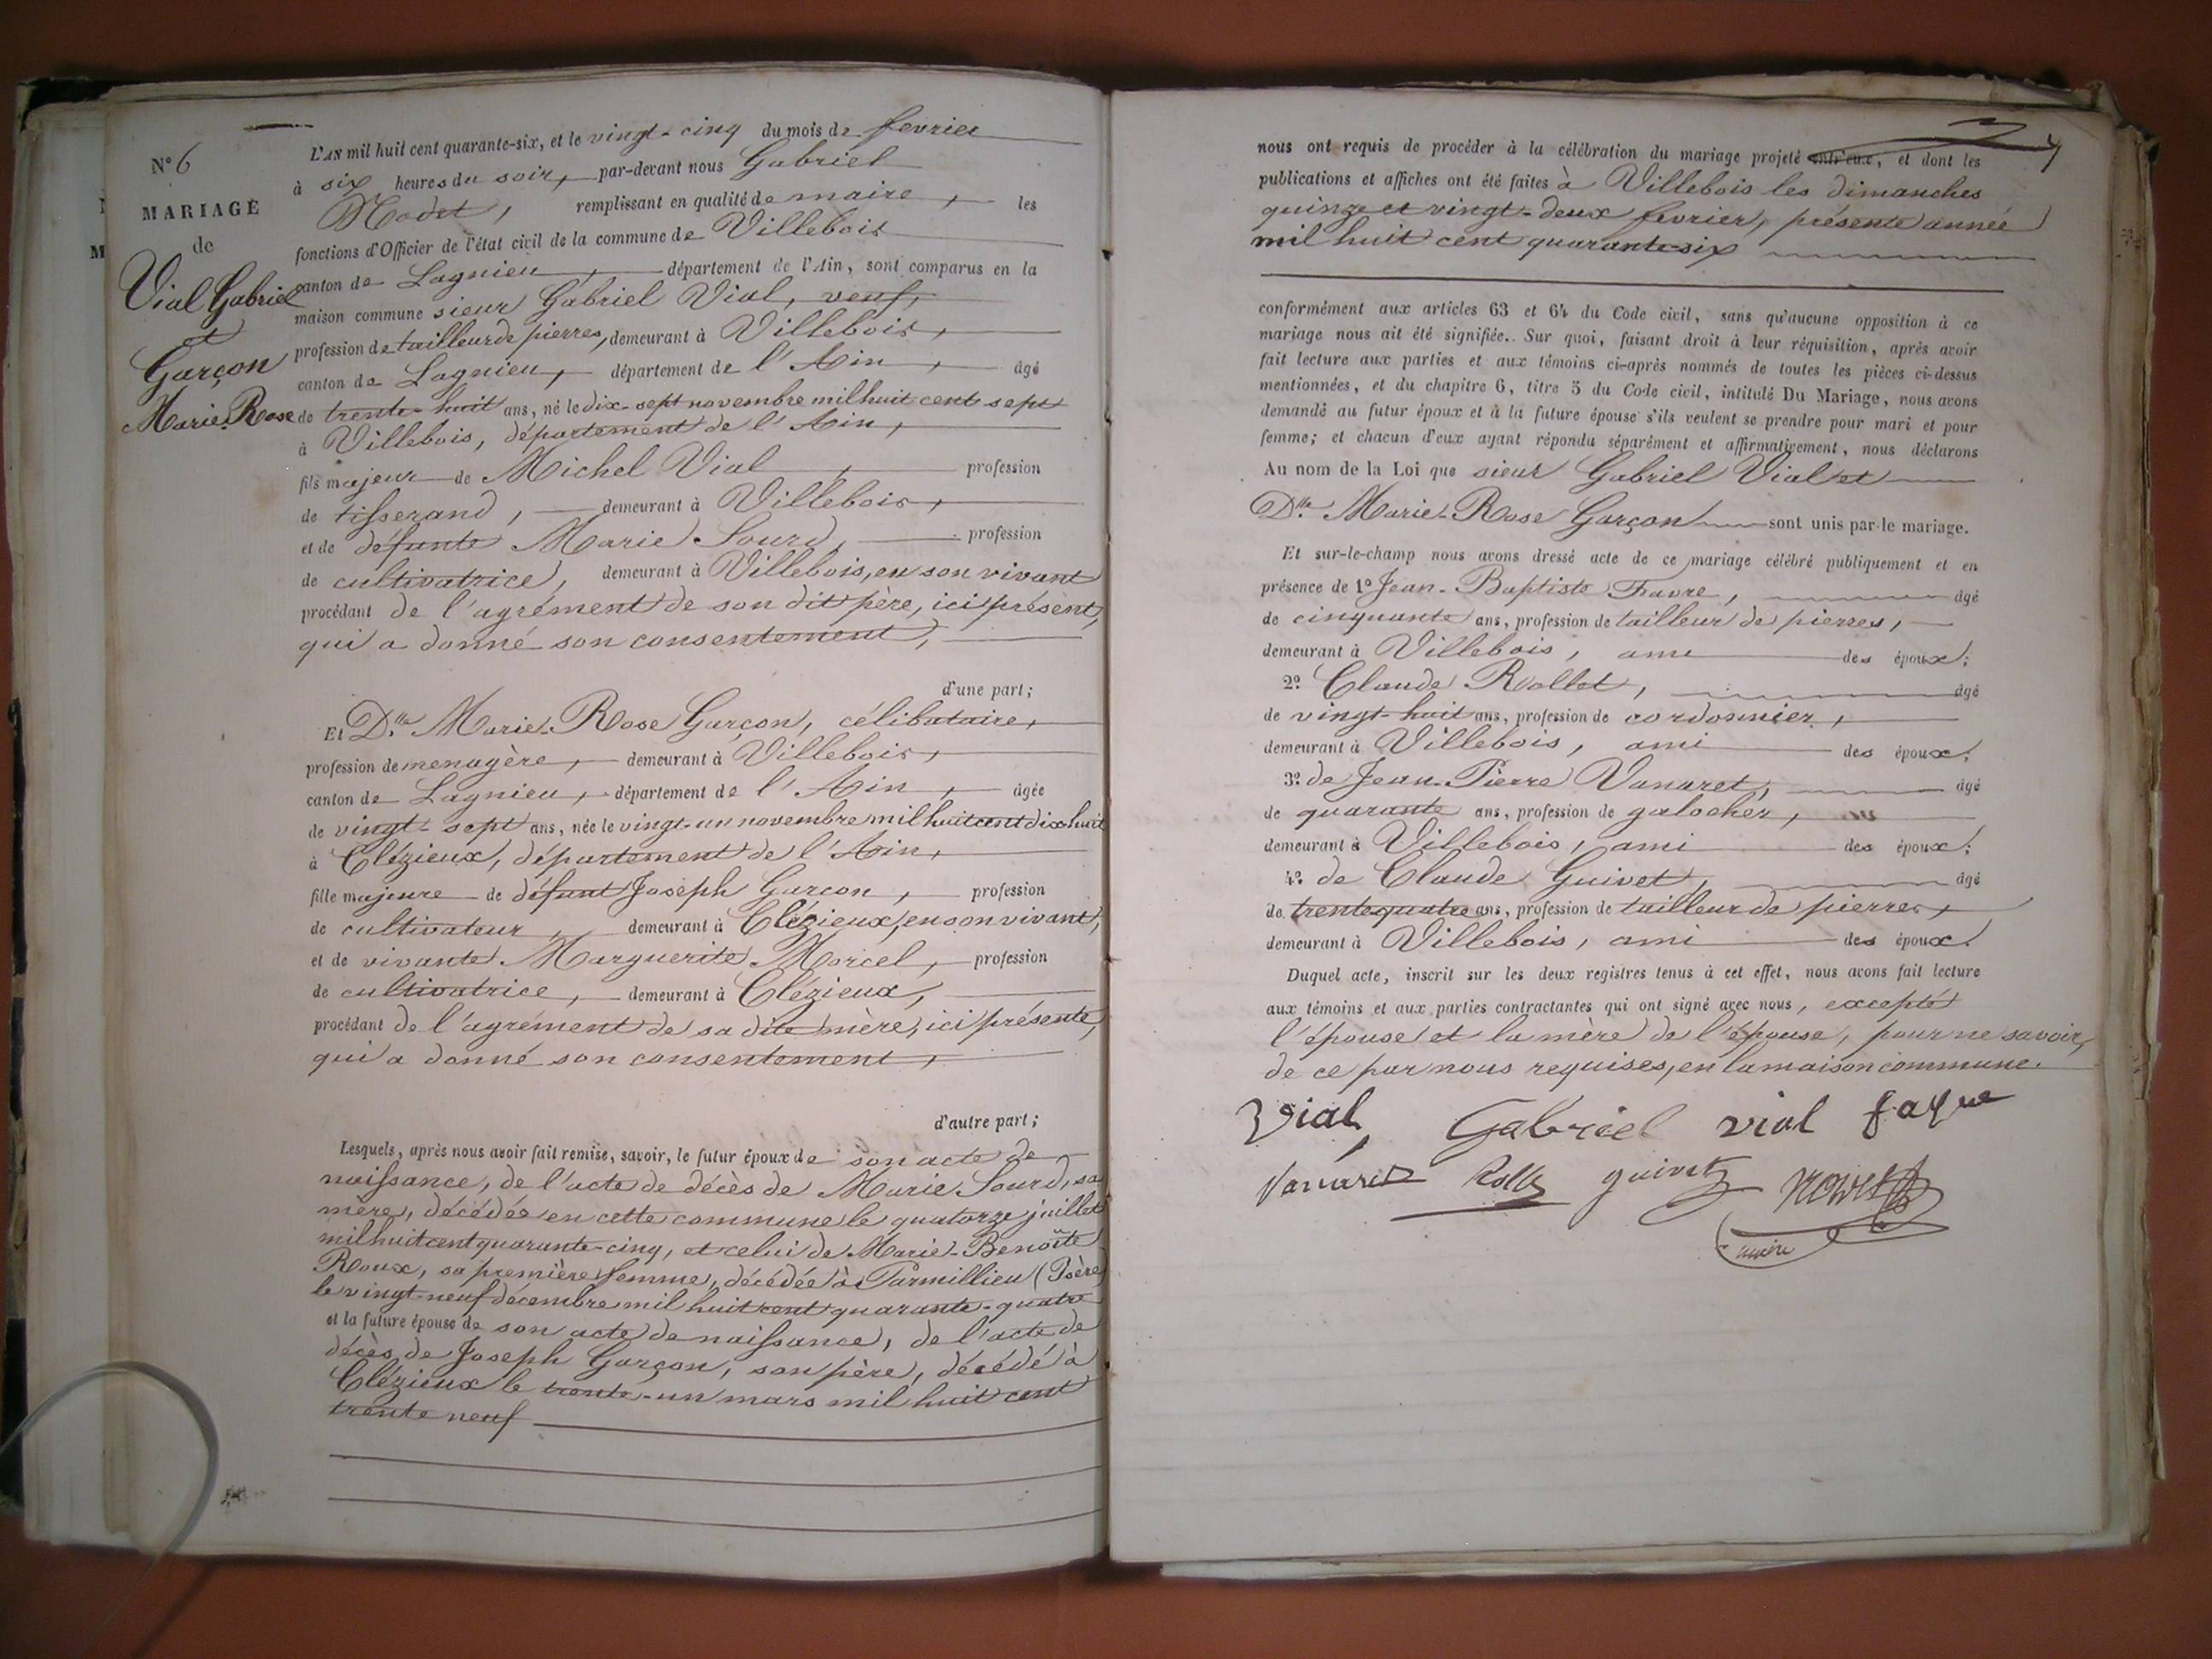 N° 6
MARIAGE
de
Vial Gabriel
et
Garçon
Marie-Rose
L'AN mil huit cent quarante-six, et le vingt-cinq du mois de fevrier
à six heures du soir, par-devant nous Gabriel
Modet, remplissant en qualité de maire, les
fonctions d'Officier de l'état civil de la commune de Villebois
canton de Lagnieu, département de l'Ain, sont comparus en la
maison commune sieur Gabriel Vial, veuf,
profession de tailleur de pierres, demeurant à Villebois,
canton de Lagnieu, département de l'Ain, âgé
de trente-huit ans, né le dix-sept novembre mil huit cent sept
à Villebois, département de l'Ain,
fils majeur de Michel Vial, profession
de tisserand, demeurant à Villebois,
et de défunte Marie Sourd, profession
de cultivatrice, demeurant à Villebois, en son vivant
procédant de l'agrément de son dit père, ici présent,
qui a donné son consentement,
d'une part;
Et Dlle Marie-Rose Garçon, célibataire,
profession de menagère, demeurant à Villebois,
canton de Lagnieu, département de l'Ain, âgée
de vingt-sept ans, née le vingt-un novembre mil huit cent dix huit
à Clézieux, département de l'Ain,
fille majeure de défunt Joseph Garcon, profession
de cultivateur, demeurant à Clézieux, en son vivant,
et de vivante Marguerite Morcel, profession
de cultivatrice, demeurant à Clézieux,
procédant de l'agrément de sa dite mère, ici présente,
qui a donné son consentement,
d'autre part;
Lesquels, après nous avoir fait remise, savoir, le futur époux de son acte de
naissance, de l'acte de décès de Marie Sourd, sa
mère, décédée en cette commune le quatorze juillet
mil huit cent quarante-cinq, et celui de Marie-Benoîte
Roux, sa première femme, décédée à Parmillieu (Isère)
le vingt-neuf décembre mil huit cent quarante-quatre
et la future épouse de son acte de naissance, de l'acte de
décès de Joseph Garçon, son père, décédé à
Clézieux le trente-un mars mil huit cent
trente neuf
nous ont requis de procéder à la célébration du mariage projeté entr'eux, et dont les
publications et affiches ont été faites à Villebois les dimanches
quinze et vingt-deux fevrier, présente année
mil huit cent quarante-six
conformément aux articles 63 et 64 du Code civil, sans qu'aucune opposition à ce
mariage nous ait été signifiée. Sur quoi, faisant droit à leur réquisition, après avoir
fait lecture aux parties et aux témoins ci-après nommés de toutes les pièces ci-dessus
mentionnées, et du chapitre 6, titre 5 du Code civil, intitulé Du Mariage, nous avons
demandé au futur époux et à la future épouse s'ils veulent se prendre pour mari et pour
femme; et chacun d'eux ayant répondu séparément et affirmativement, nous déclarons
Au nom de la Loi que sieur Gabriel Vial et
Dlle Marie-Rose Garçon sont unis par le mariage.
Et sur-le-champ nous avons dressé acte de ce mariage célébré publiquement et en
présence de 1° Jean-Baptiste Favre, âgé
de cinquante ans, profession de tailleur de pierres,
demeurant à Villebois, ami des époux;
2° Claude Rollet, âgé
de vingt-huit ans, profession de cordonnier,
demeurant à Villebois, ami des époux;
3° de Jean-Pierre Vanaret, âgé
de quarante ans, profession de galocher,
demeurant à Villebois, ami des époux;
4° de Claude Guivet, âgé
de trente quatre ans, profession de tailleur de pierres,
demeurant à Villebois, ami des époux.
Duquel acte, inscrit sur les deux registres tenus à cet effet, nous avons fait lecture
aux témoins et aux parties contractantes qui ont signé avec nous, excepté
l'épouse et la mère de l'épouse, pour ne savoir,
de ce par nous requises, en la maison commune.
Vial Gabriel vial
Vanaret guivet
maire